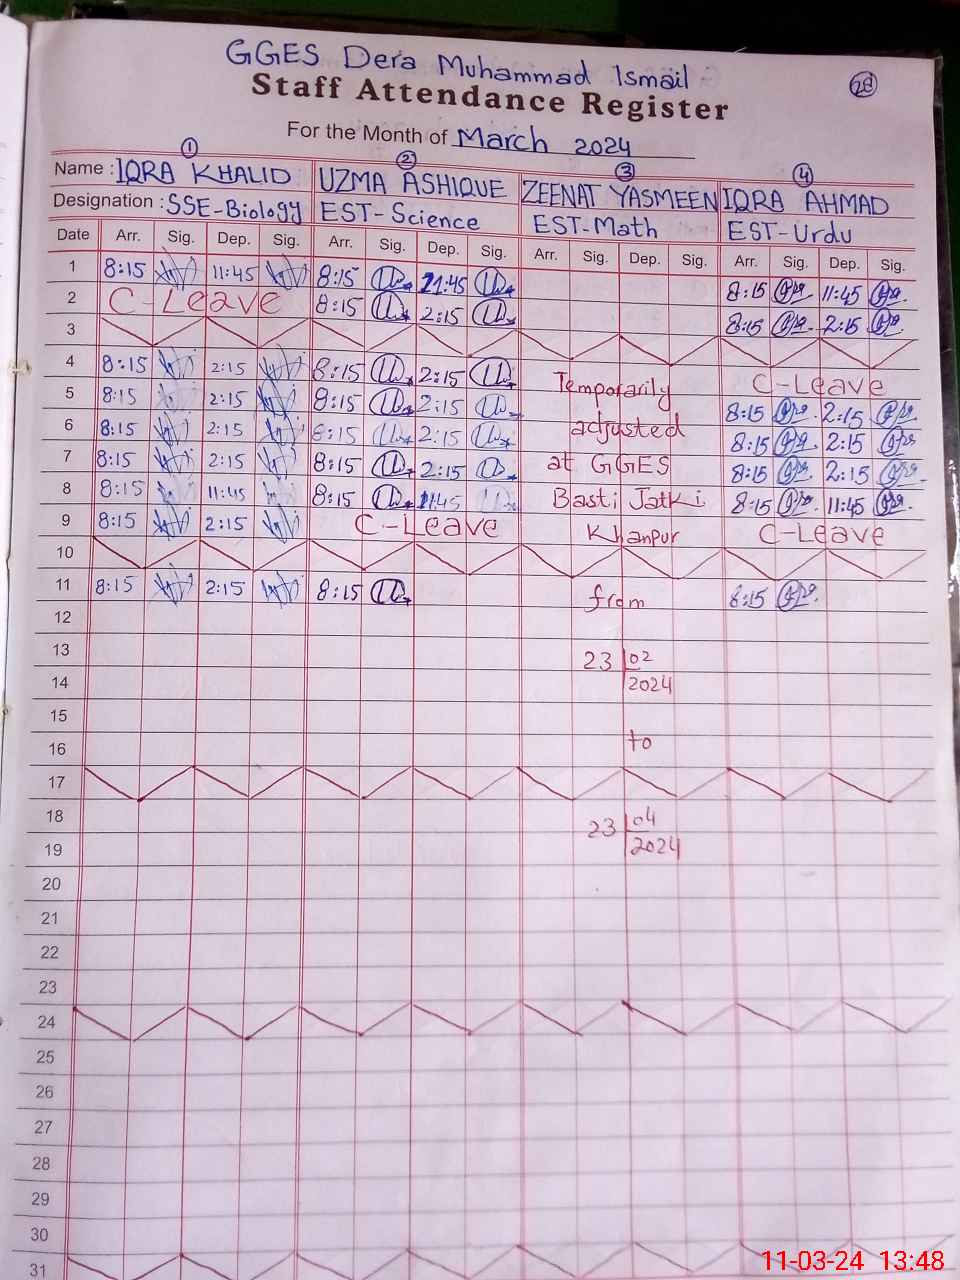 GGES Dera Muhammad Ismail
28
Staff Attendance Register
For the Month of March 2024
1 2 3 4
Name : IQRA KHALID UZMA ASHIQUE ZEENAT YASMEEN IQRA AHMAD
Designation : SSE-Biology EST-Science EST-Math EST-Urdu
Date Arr. Sig. Dep. Sig. Arr. Sig. Dep. Sig. Arr. Sig. Dep. Sig. Arr. Sig. Dep. Sig.
1 8:15 11:45 8:15 11:45 8:15 11:45
2 C-Leave 8:15 2:15 8:15 2:15
3
4 8:15 2:15 8:15 2:15 Temporarily C-Leave
5 8:15 2:15 8:15 2:15 adjusted 8:15 2:15
6 8:15 2:15 8:15 2:15 8:15 2:15
7 8:15 2:15 8:15 2:15 at GGES 8:15 2:15
8 8:15 11:45 8:15 11:45 Basti Jatki 8:15 11:45
9 8:15 2:15 C-Leave Khanpur C-Leave
10
11 8:15 2:15 8:15 from 8:15
12
13 23 02
14 2024
15
16 to
17
18 23 04
19 2024
20
21
22
23
24
25
26
27
28
29
30
31
11-03-24 13:48